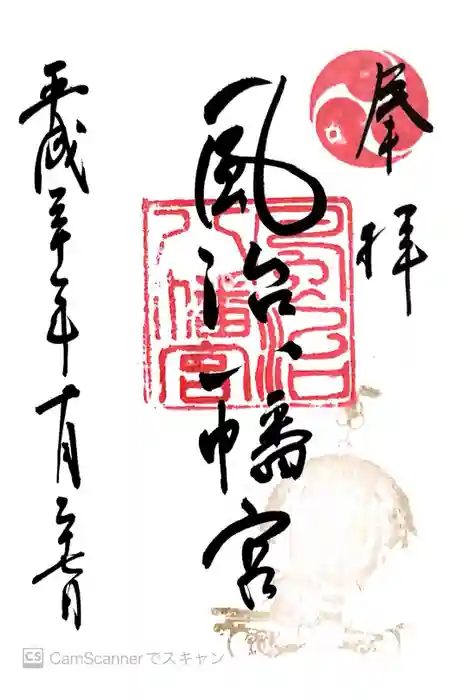 奉拝
風治八幡宮
風治
八幡宮
平成年十月二十七日
CS CamScannerでスキャン